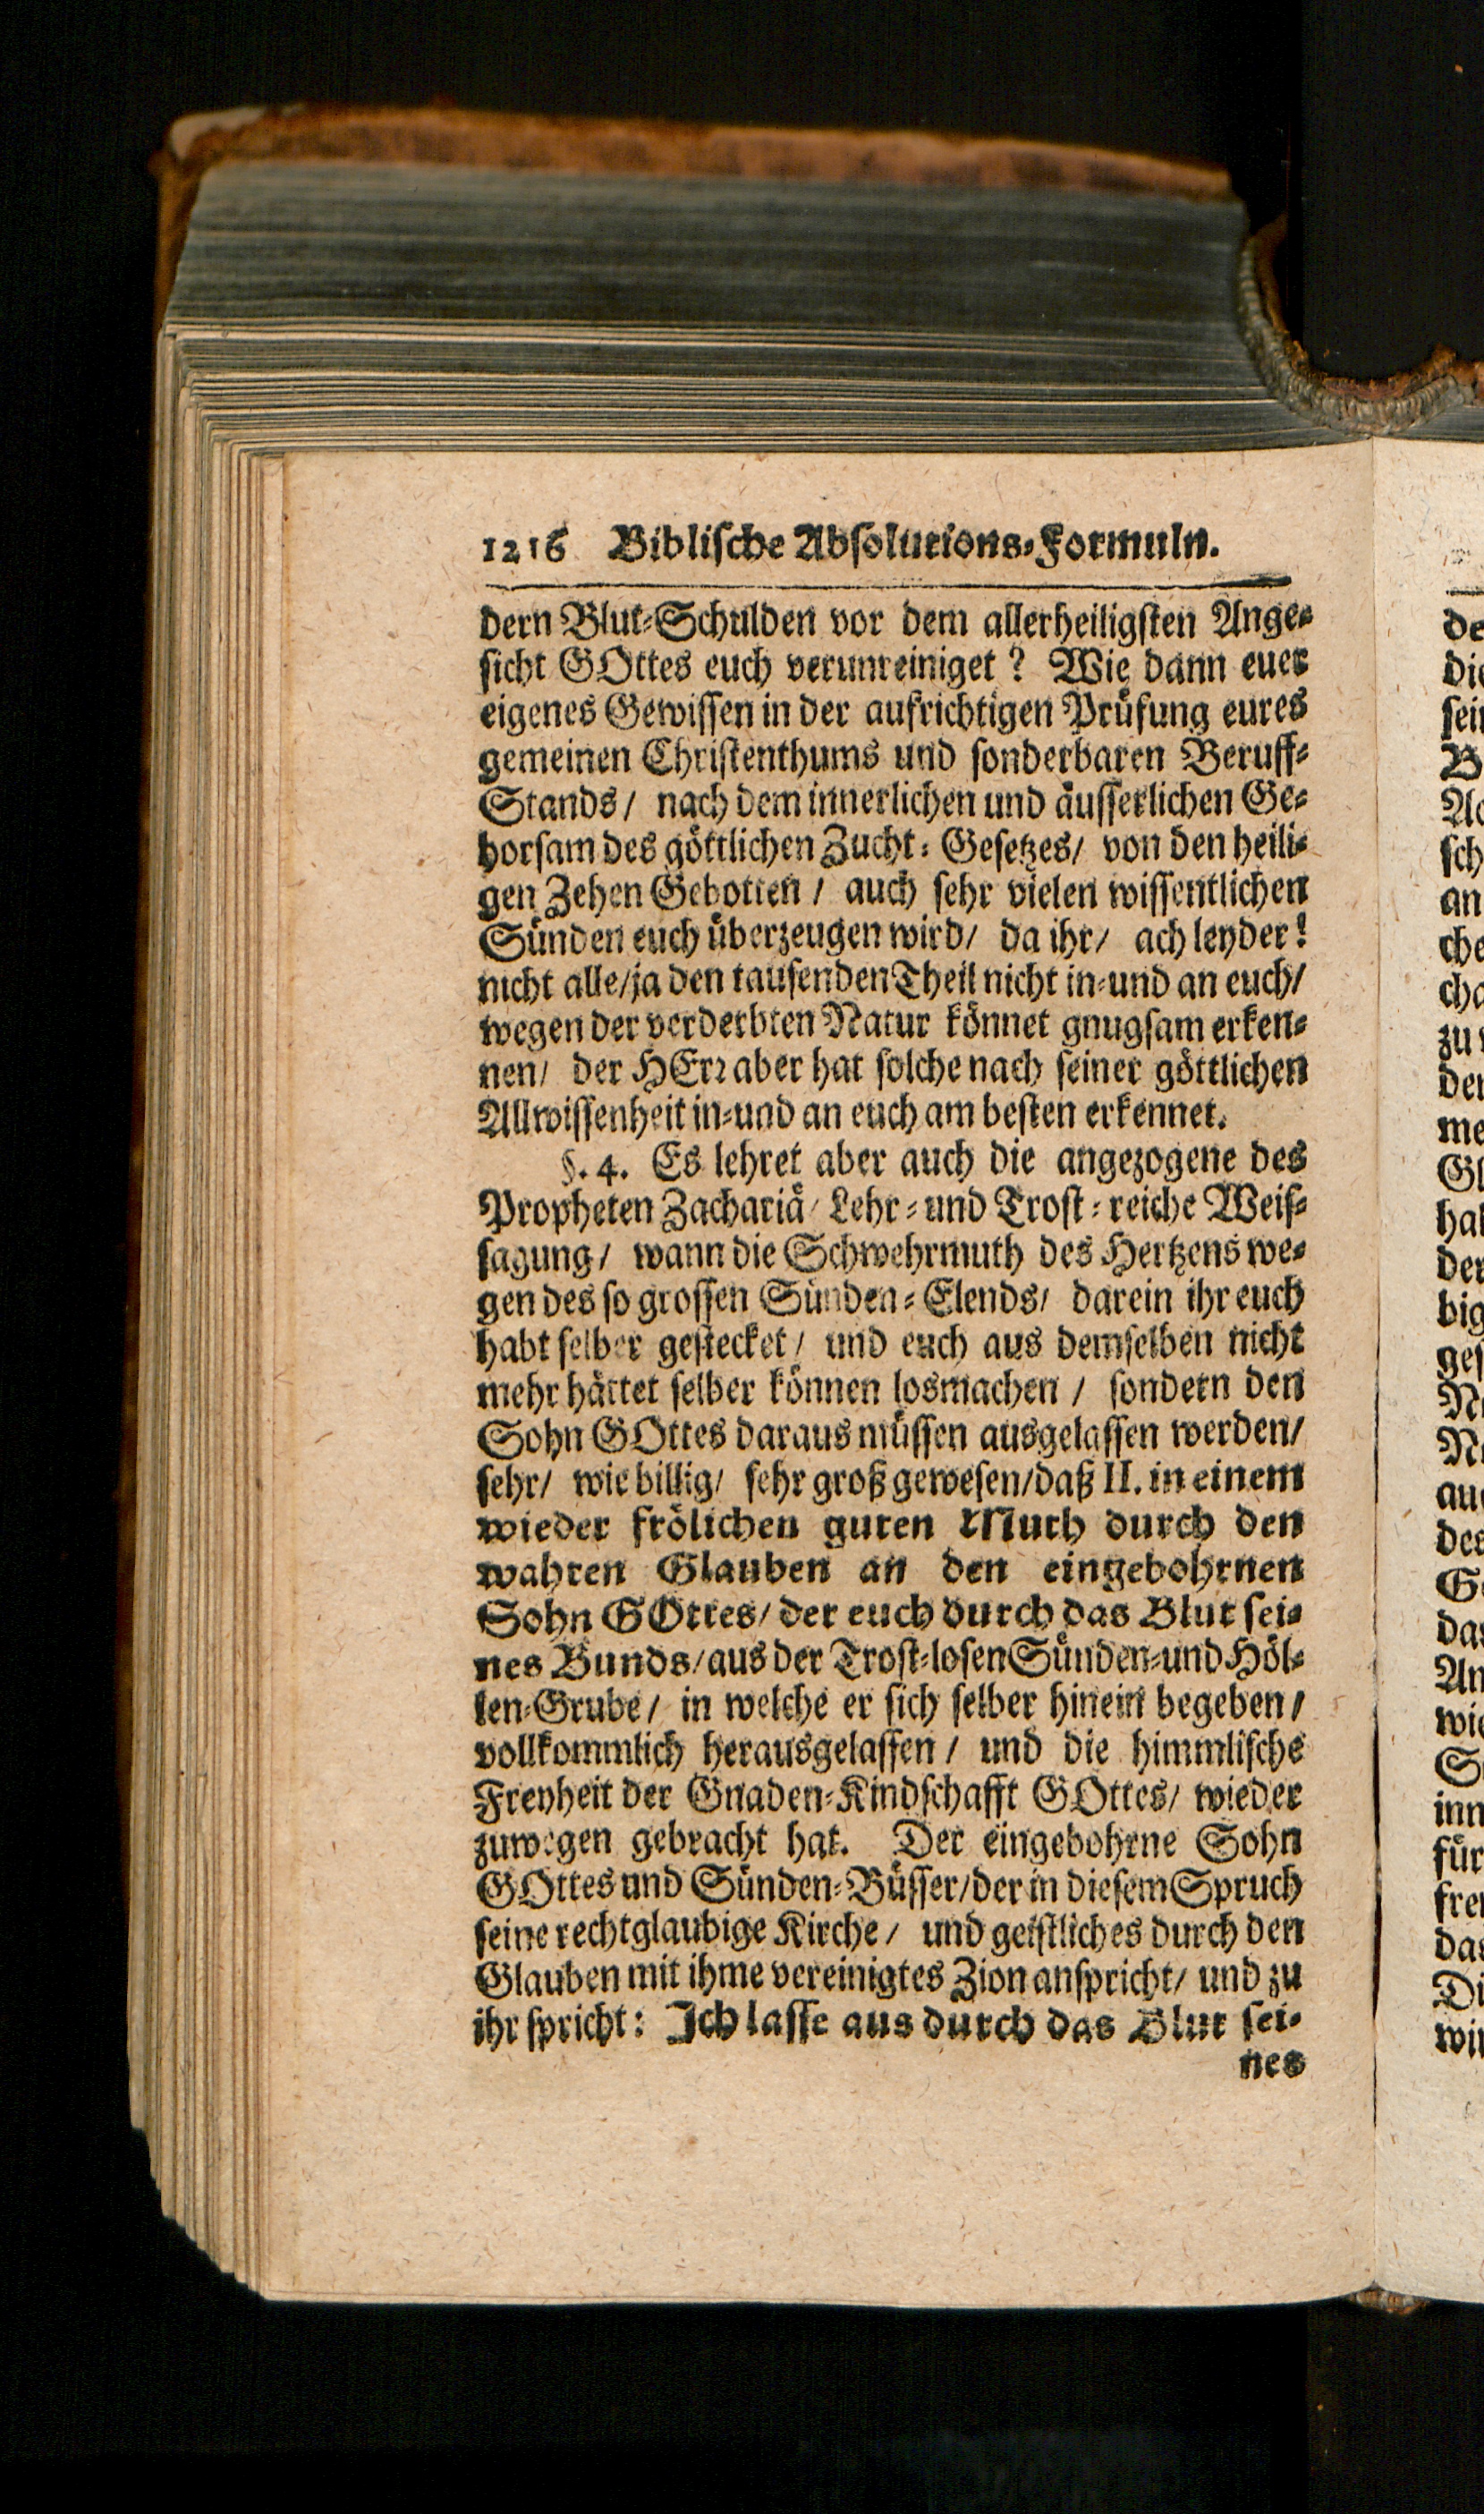 1216 Biblische Absolutions-Formuln.
dern Blut-Schulden vor dem allerheiligsten Ange-
sicht GOttes euch verunreiniget? Wie dann euer
eigenes Gewissen in der aufrichtigen Prüfung eures
gemeinen Christenthums und sonderbaren Beruff-
Stands/ nach dem innerlichen und äusserlichen Ge-
horsam des göttlichen Zucht-Gesetzes/ von den heili-
gen Zehen Gebotten/ auch sehr vielen wissentlichen
Sünden euch überzeugen wird/ da ihr/ ach leyder!
nicht alle/ja den tausenden Theil nicht in-und an euch/
wegen der verderbten Natur könnet gnugsam erken-
nen/ der HErr aber hat solche nach seiner göttlichen
Allwissenheit in-und an euch am besten erkennet.
§. 4. Es lehret aber auch die angezogene des
Propheten Zachariä/ Lehr-und Trost-reiche Weis-
sagung/ wann die Schwehrmuth des Hertzens we-
gen des so grossen Sünden-Elends/ darein ihr euch
habt selber gestecket/ und euch aus demselben nicht
mehr hättet selber können losmachen/ sondern den
Sohn GOttes daraus müssen ausgelassen werden/
sehr/ wie billig/ sehr groß gewesen/daß II. in einem
wieder frölichen guten Muth durch den
wahren Glauben an den eingebohrnen
Sohn GOttes/ der euch durch das Blut sei-
nes Bunds/aus der Trost-losen Sünden-und Höl-
len-Grube/ in welche er sich selber hinein begeben/
vollkommlich herausgelassen/ und die himmlische
Freyheit der Gnaden-Kindschafft GOttes/ wieder
zuwegen gebracht hat. Der eingebohrne Sohn
GOttes und Sünden-Büsser/der in diesem Spruch
seine rechtglaubige Kirche/ und geistliches durch den
Glauben mit ihme vereinigtes Zion anspricht/ und zu
ihr spricht: Ich lasse aus durch das Blut sei-
nes